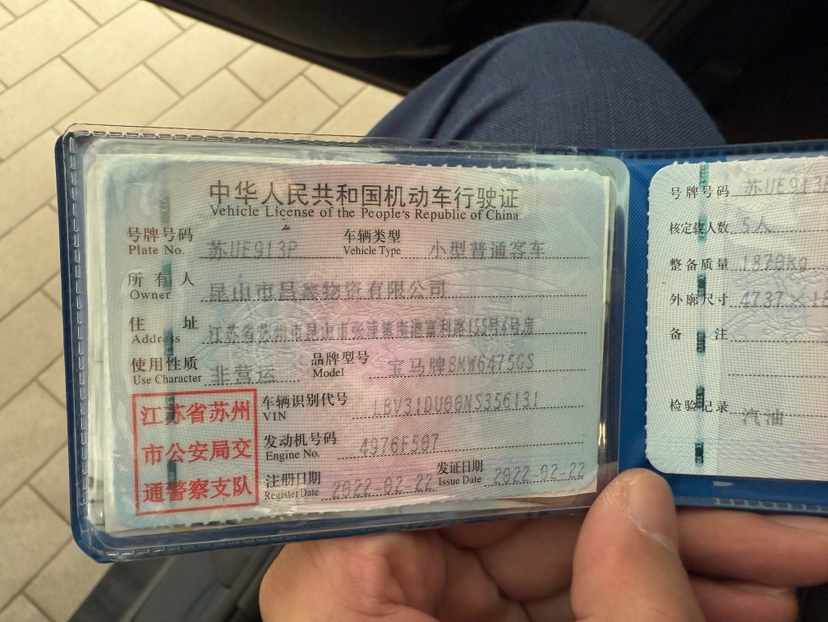 中华人民共和国机动车行驶证
Vehicle License of the People's Republic of China
号牌号码 苏UE913P 车辆类型 小型普通客车
Plate No. Vehicle Type
所有人 昆山市昌鑫物资有限公司
Owner
住址 江苏省苏州市昆山市张浦镇南港富利路155号6号房
Address
使用性质 非营运 品牌型号 宝马牌BMW6475GS
Use Character Model
江苏省苏州
市公安局交
通警察支队
车辆识别代号 LBV31DU08NS356131
VIN
发动机号码 4976F507
Engine No.
注册日期 2022-02-22 发证日期 2022-02-22
Register Date Issue Date
号牌号码 苏UE913
核定载人数 5人
整备质量 1870Kg
外廓尺寸 4737×18
备注
检验记录
汽油